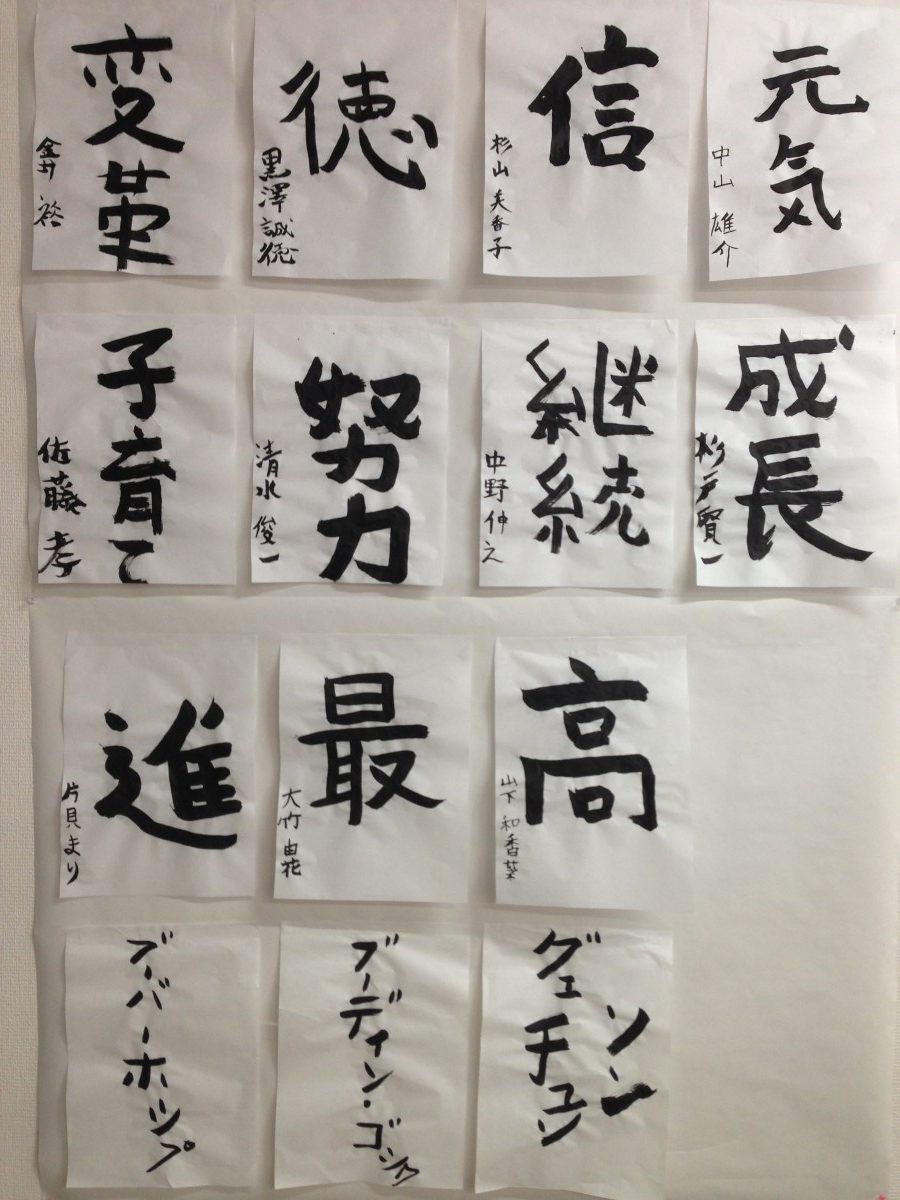 変革
金井 裕
徳
黒澤誠徳
信
杉山 美香子
元気
中山 雄介
子育て
佐藤 孝
努力
清水 俊一
継続
中野 伸之
成長
杉戸賢一
進
片貝まり
最
大竹 由花
高
山下 和香菜
ブーバーホップ
ブーディン・ゴック
グェチュン
ソーン